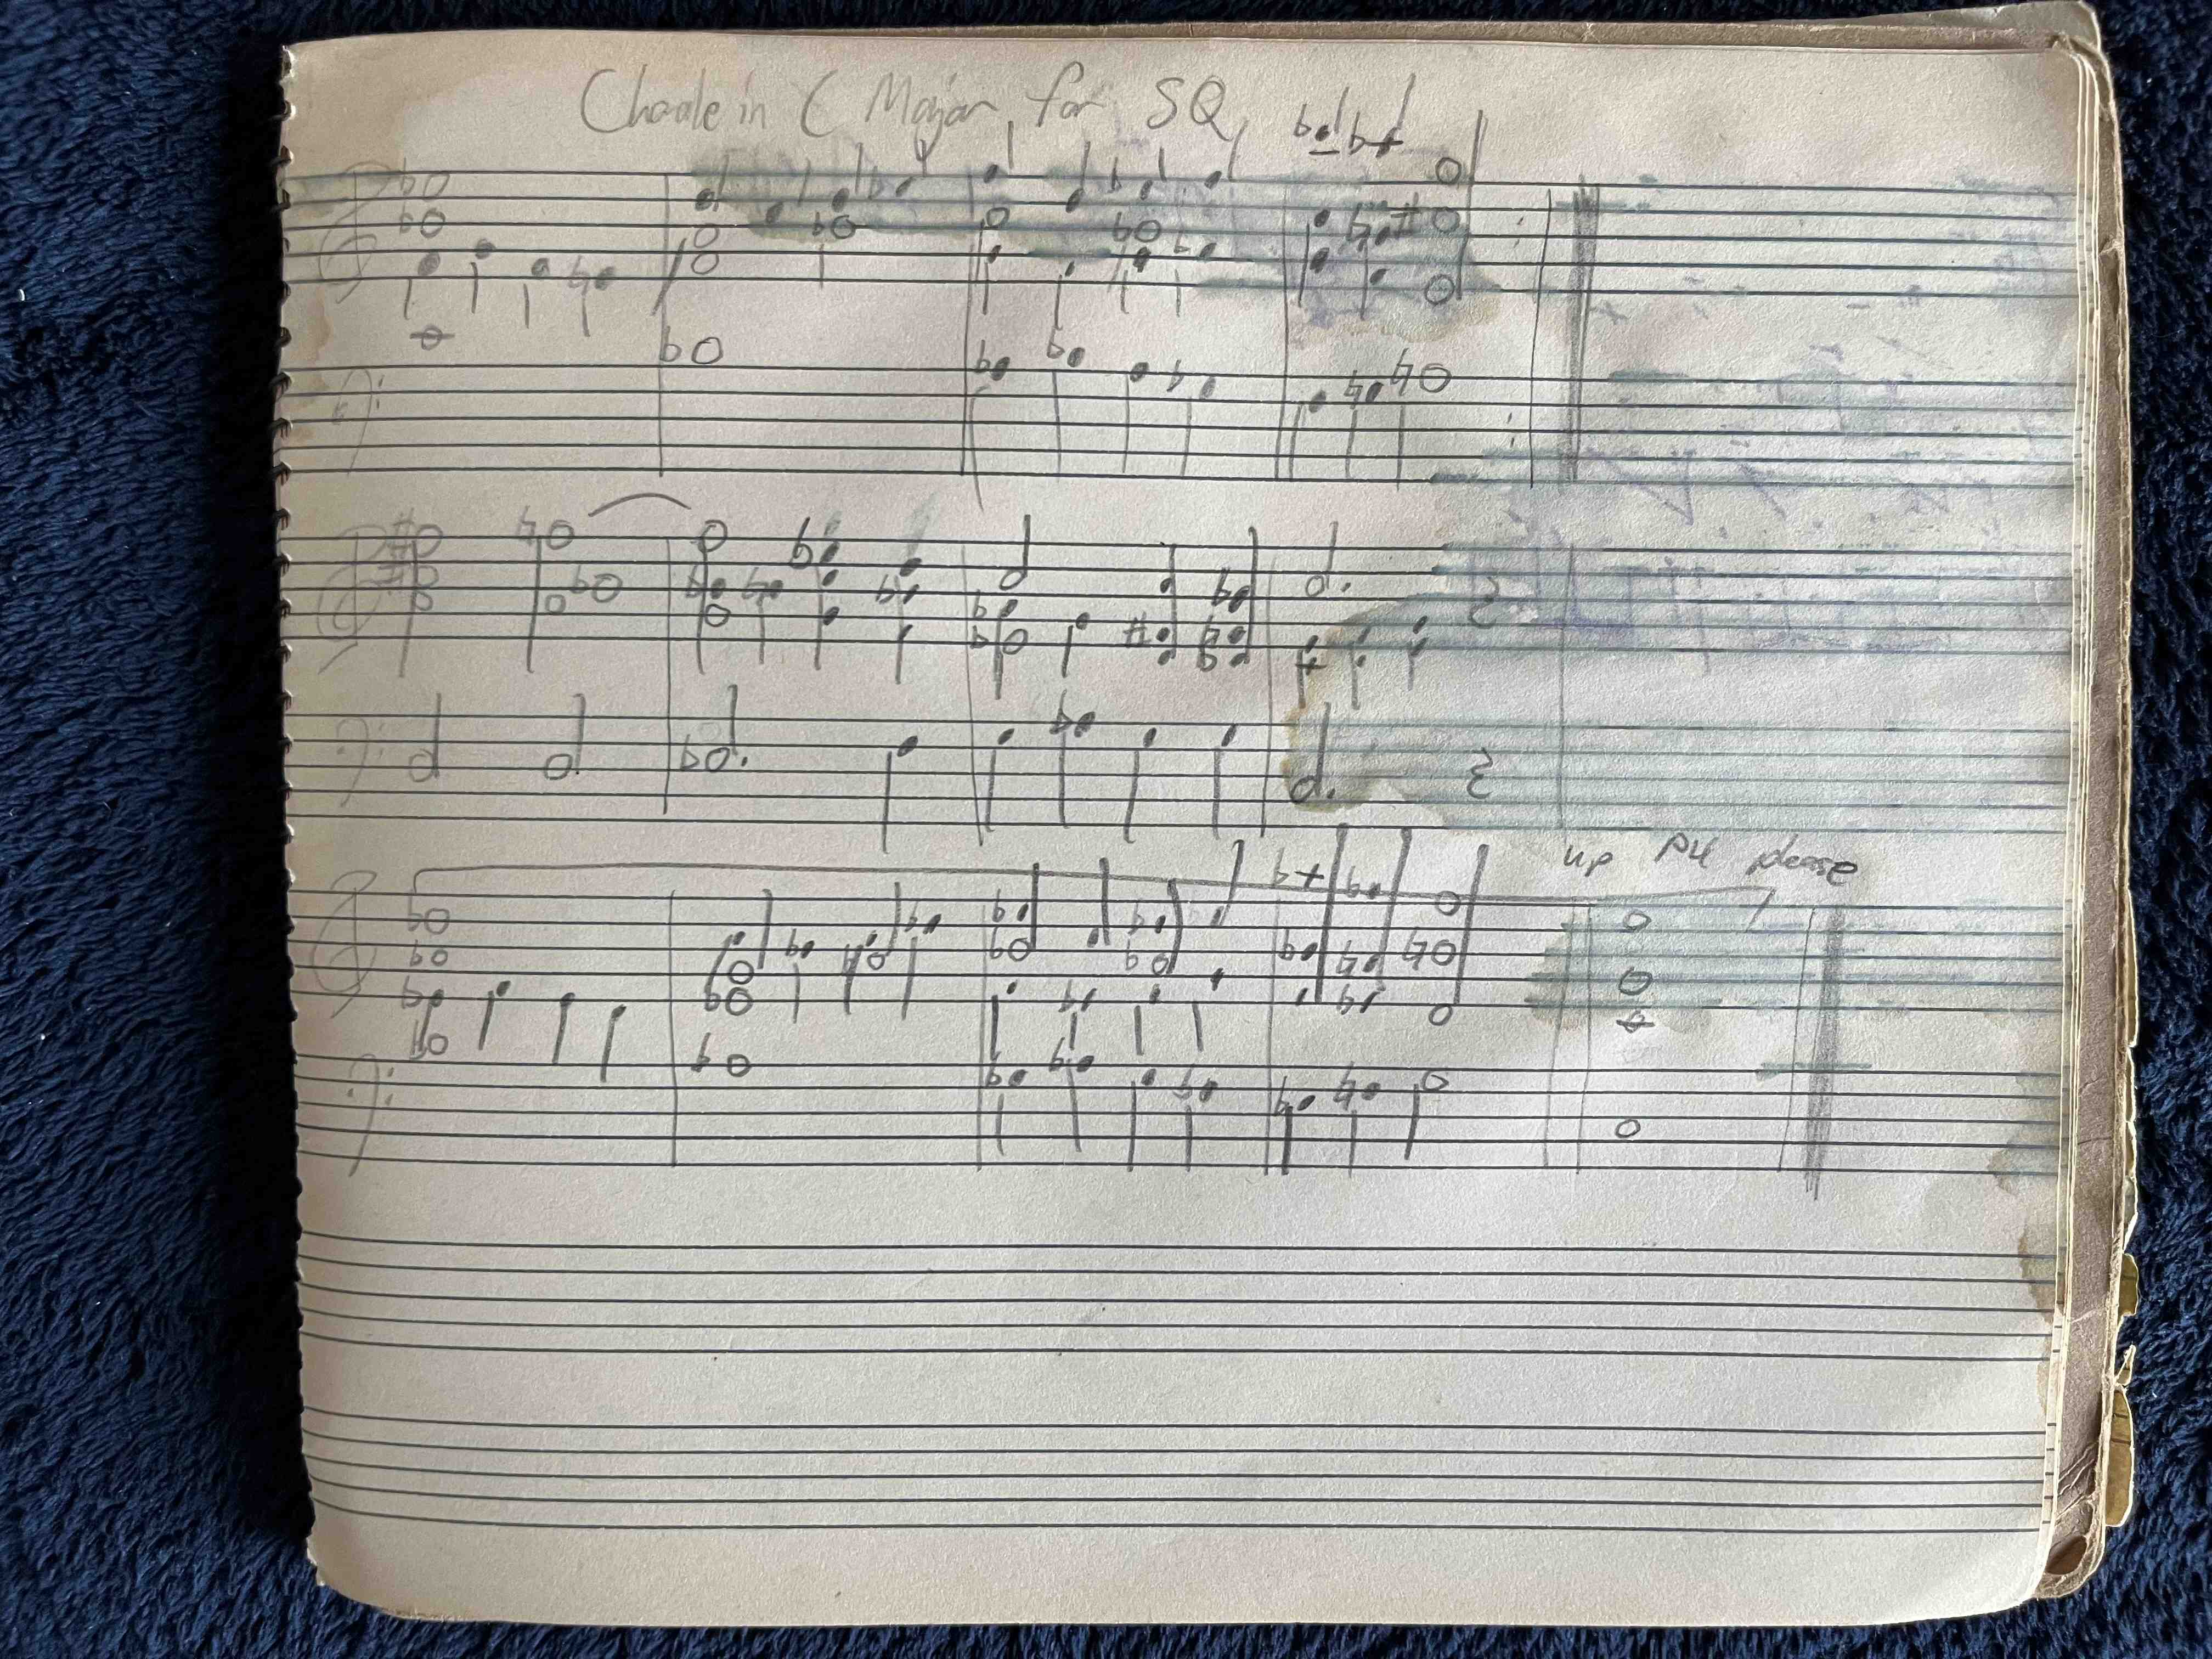 Chorale in C Major for SQ
up P4 please